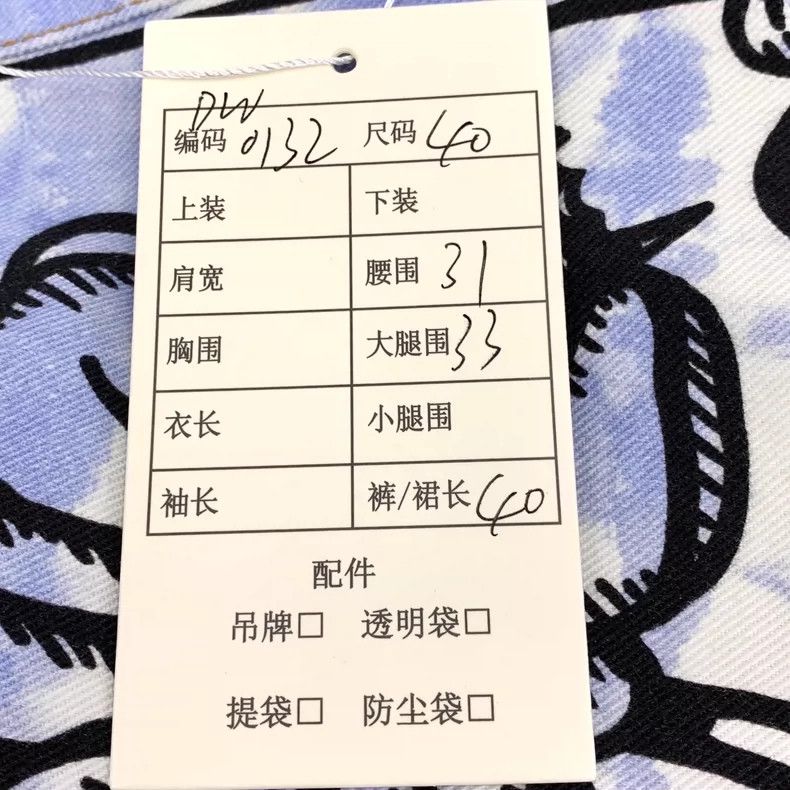 DW
编码 0132 尺码 40
上装 下装
肩宽 腰围 31
胸围 大腿围 33
衣长 小腿围
袖长 裤/裙长 40
配件
吊牌□ 透明袋□
提袋□ 防尘袋□